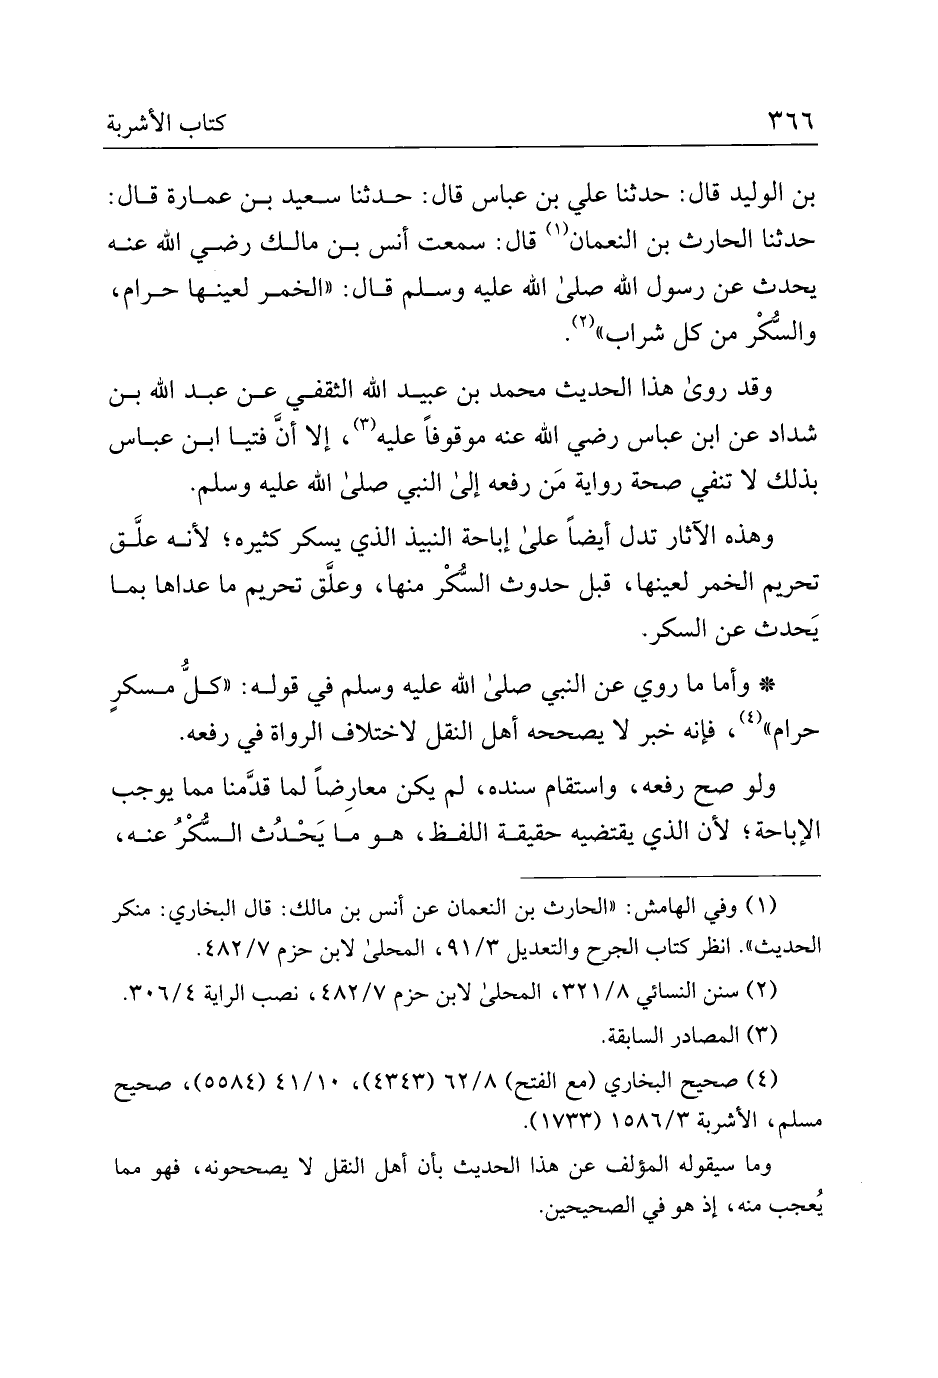 ٣٦٦ كتاب الأشربة
بن الوليد قال: حدثنا علي بن عباس قال: حدثنا سعيد بن عمارة قال:
حدثنا الحارث بن النعمان(١) قال: سمعت أنس بن مالك رضي الله عنه
يحدث عن رسول الله صلىٰ الله عليه وسلم قال: «الخمر لعينها حرام،
والسُّكْر من كل شراب»(٢).
وقد روىٰ هذا الحديث محمد بن عبيد الله الثقفي عن عبد الله بن
شداد عن ابن عباس رضي الله عنه موقوفاً عليه(٣)، إلا أنَّ فتيا ابن عباس
بذلك لا تنفي صحة رواية مَن رفعه إلىٰ النبي صلىٰ الله عليه وسلم.
وهذه الآثار تدل أيضاً علىٰ إباحة النبيذ الذي يسكر كثيره؛ لأنه علَّق
تحريم الخمر لعينها، قبل حدوث السُّكْر منها، وعلَّق تحريم ما عداها بما
يَحدث عن السكر.
* وأما ما روي عن النبي صلىٰ الله عليه وسلم في قوله: «كلُّ مسكرٍ
حرام»(٤)، فإنه خبر لا يصححه أهل النقل لاختلاف الرواة في رفعه.
ولو صح رفعه، واستقام سنده، لم يكن معارِضاً لما قدَّمنا مما يوجب
الإباحة؛ لأن الذي يقتضيه حقيقة اللفظ، هو ما يَحْدُث السُّكْرُ عنه،
(١) وفي الهامش: «الحارث بن النعمان عن أنس بن مالك: قال البخاري: منكر
الحديث». انظر كتاب الجرح والتعديل ٩١/٣، المحلىٰ لابن حزم ٤٨٢/٧.
(٢) سنن النسائي ٣٢١/٨، المحلىٰ لابن حزم ٤٨٢/٧، نصب الراية ٣٠٦/٤.
(٣) المصادر السابقة.
(٤) صحيح البخاري (مع الفتح) ٦٢/٨ (٤٣٤٣)، ٤١/١٠ (٥٥٨٤)، صحيح
مسلم، الأشربة ١٥٨٦/٣ (١٧٣٣).
وما سيقوله المؤلف عن هذا الحديث بأن أهل النقل لا يصححونه، فهو مما
يُعجب منه، إذ هو في الصحيحين.